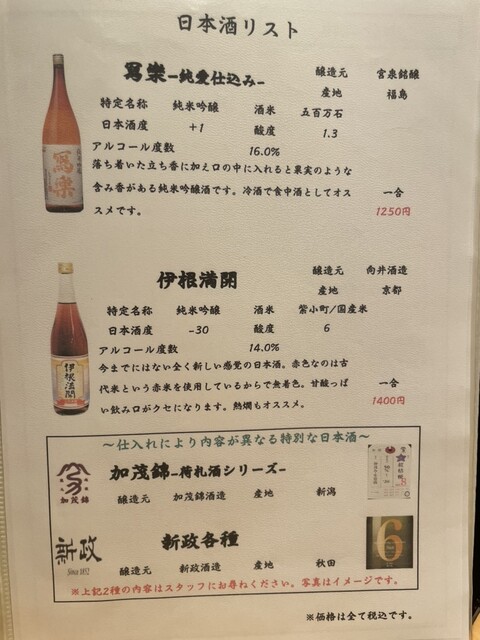 日本酒リスト
寫樂-純愛仕込み-
醸造元 宮泉銘醸
産地 福島
特定名称 純米吟醸 酒米 五百万石
日本酒度 +1 酸度 1.3
アルコール度数 16.0%
落ち着いた立ち香に加え口の中に入れると果実のような
含み香がある純米吟醸酒です。冷酒で食中酒としてオス
スメです。
一合
1250円
寫樂
伊根満開
醸造元 向井酒造
産地 京都
特定名称 純米吟醸 酒米 紫小町/国産米
日本酒度 -30 酸度 6
アルコール度数 14.0%
今までにはない全く新しい感覚の日本酒。赤色なのは古
代米という赤米を使用しているからで無着色。甘酸っぱ
い飲み口がクセになります。熱燗もオススメ。
一合
1400円
伊根満開
～仕入れにより内容が異なる特別な日本酒～
加茂錦
加茂錦-荷札酒シリーズ-
醸造元 加茂錦酒造 産地 新潟
新政
Since 1852
新政各種
醸造元 新政酒造 産地 秋田
6
※上記2種の内容はスタッフにお尋ねください。写真はイメージです。
※価格は全て税込です。